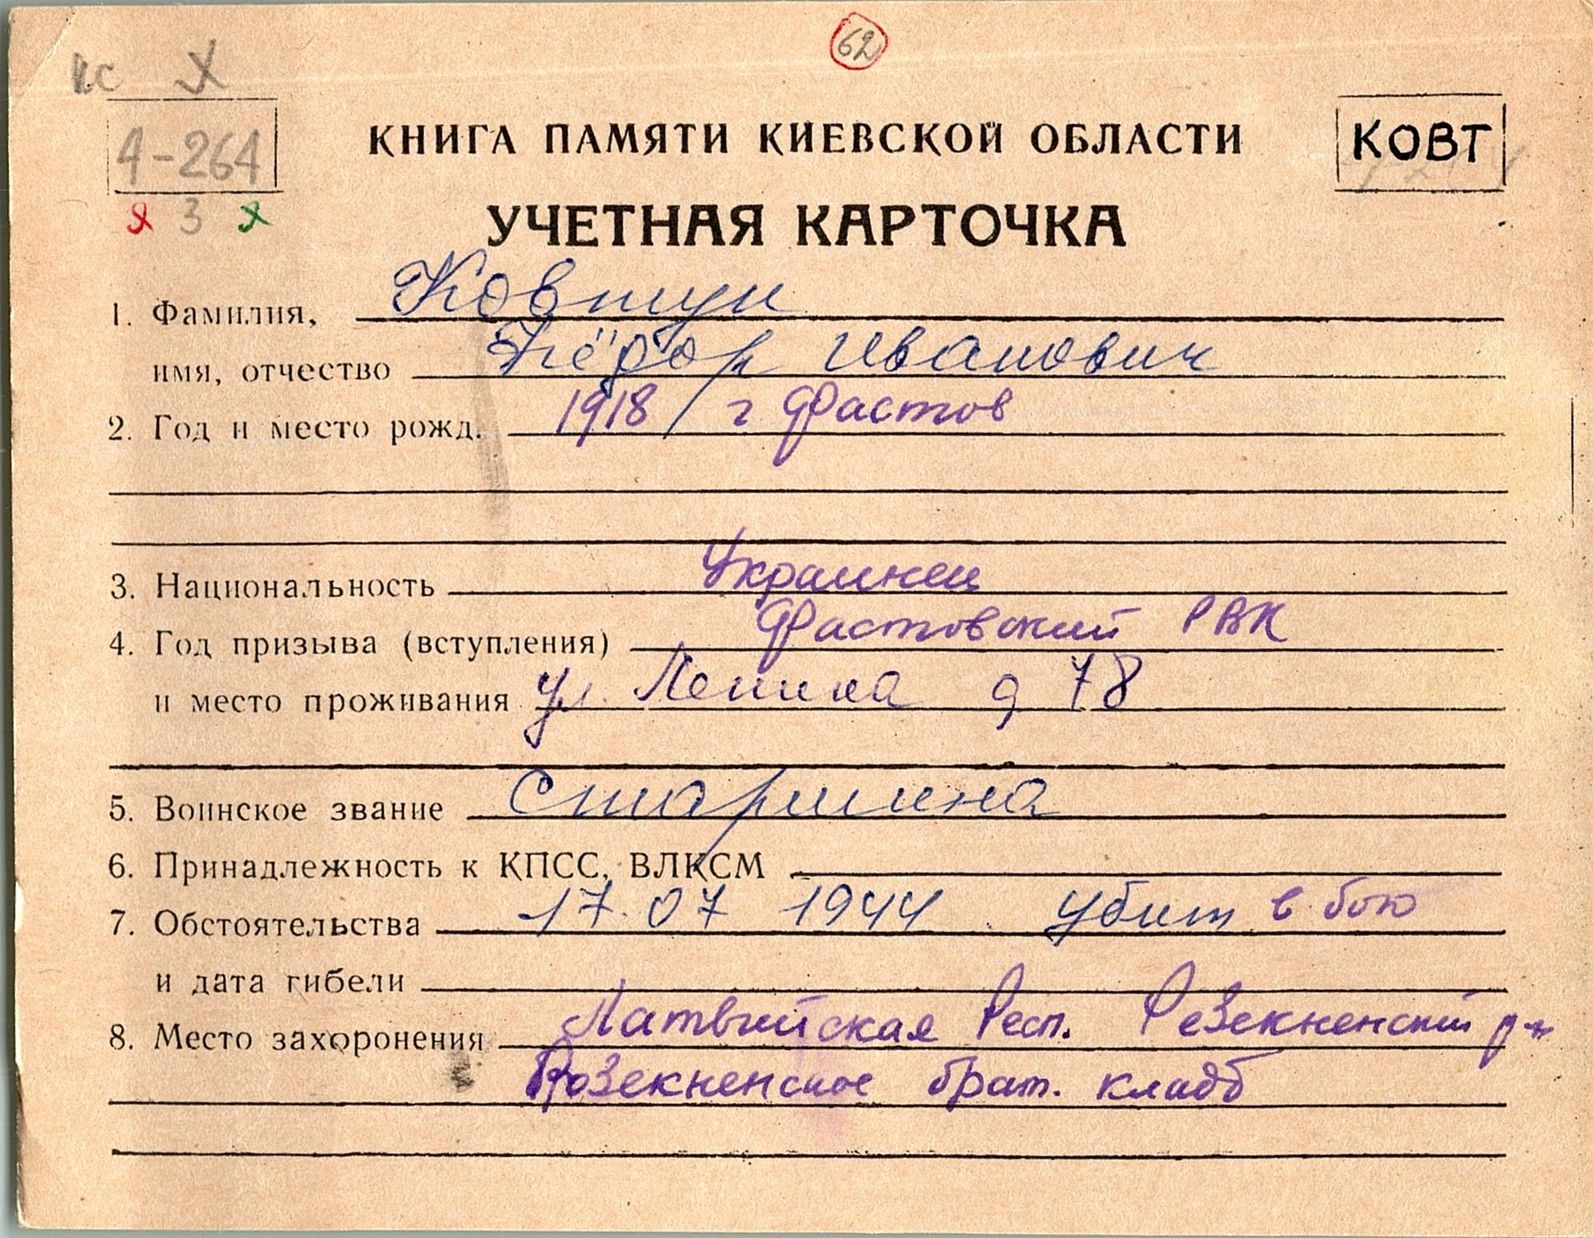 62
КС Х
4-264
КНИГА ПАМЯТИ КИЕВСКОЙ ОБЛАСТИ
КОВТ
3
УЧЕТНАЯ КАРТОЧКА
1. Фамилия, Ковтун
имя, отчество Фёдор Иванович
2. Год и место рожд. 1918 / г Фастов
3. Национальность Украинец
4. Год призыва (вступления) Фастовский РВК
и место проживания ул. Ленина д 78
5. Воинское звание Старшина
6. Принадлежность к КПСС, ВЛКСМ
7. Обстоятельства 17.07 1944 убит в бою
и дата гибели
8. Место захоронения Латвийская Респ. Резекненский р-н
Розекненское брат. кладб